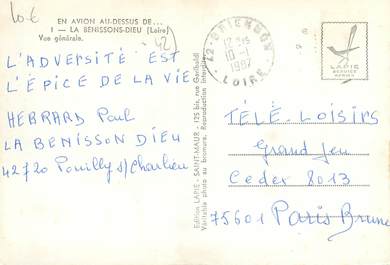 10€
EN AVION AU-DESSUS DE...
1 — LA BENISSONS-DIEU (Loire)
Vue générale.
(42)
L'ADVERSITÉ EST
L'ÉPICE DE LA VIE
HEBRARD Paul
LA BENISSON DIEU
42720 Pouilly s/Charlieu
Edition LAPIE - SAINT-MAUR - 125 bis, rue Garibaldi
Véritable photo au bromure. Reproduction interdite
10-1
1987
LOIRE
LAPIE
SERVICE
AERIEN
TÉLÉ-LOISIRS
Grand Jeu
Cedex 8013
75601 Paris Brune